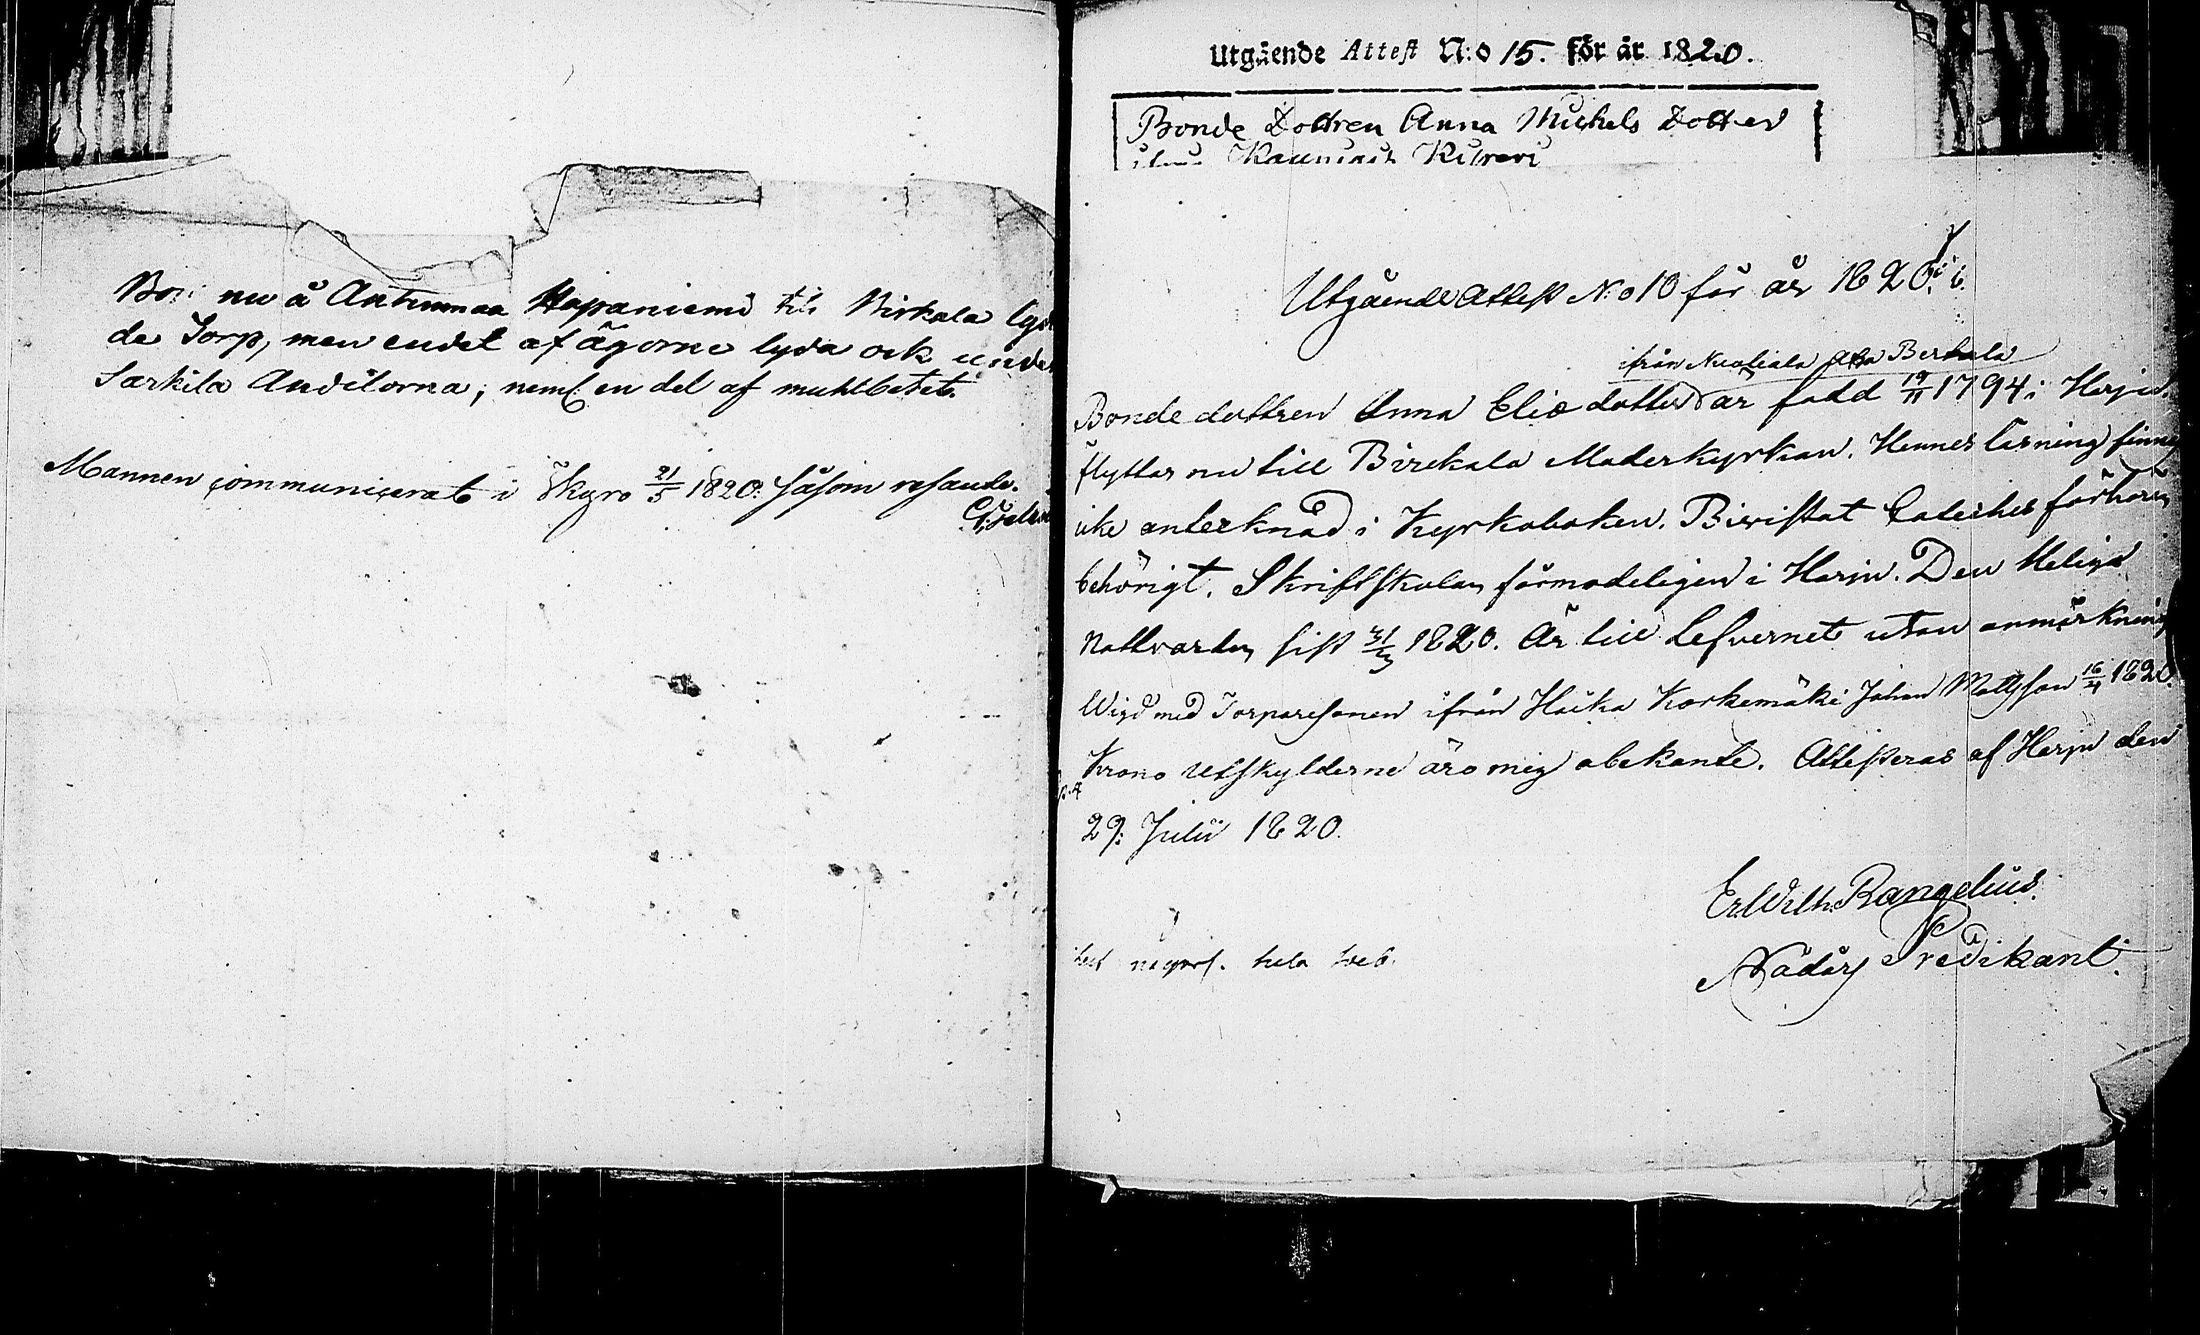 Bor nu å Antumaa Hapaniemi til Birkala lyd
de Torp, men endel af ägorne lyda ock under
Sarkila Anditorna; neml. en del af muhlbetet.
Mannen communicerat i Ikyro 21/5 1820. såsom resande.
Utgående Attest N:o 15. för år 1820.
Bonde Dottren Anna Michels Dotter
Utgående Attest N:o 10 för år 1820.
ifrån Birkala
Bonde dottren Anna Eliæ dotter är född 19/11 1794 i Harju,
flyttar nu till Birckala Moderkyrkan. Hennes läsning finnes
icke anteknad i Kyrkoboken. Biwistat Cateches förhören
behörigt. Skriftskolan förmodeligen i Harju. Den Heliga
Nattvarden sist 31/3 1820. Är till Lefvernet utan anmärkning
Wigd med Torparesonen ifrån Haika Korkemäki Johan Mattsson 16/4 1820.
Krono Utskylderne äro mig obekante. Attesteras af Harju den
29: Julii 1820.
Er Wilh. Rangelius.
Nådårs Predikant.